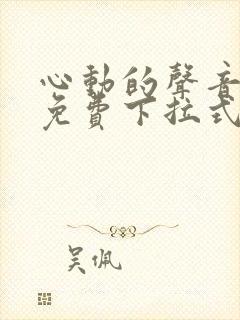 心動的聲音
免費下拉式
吳佩